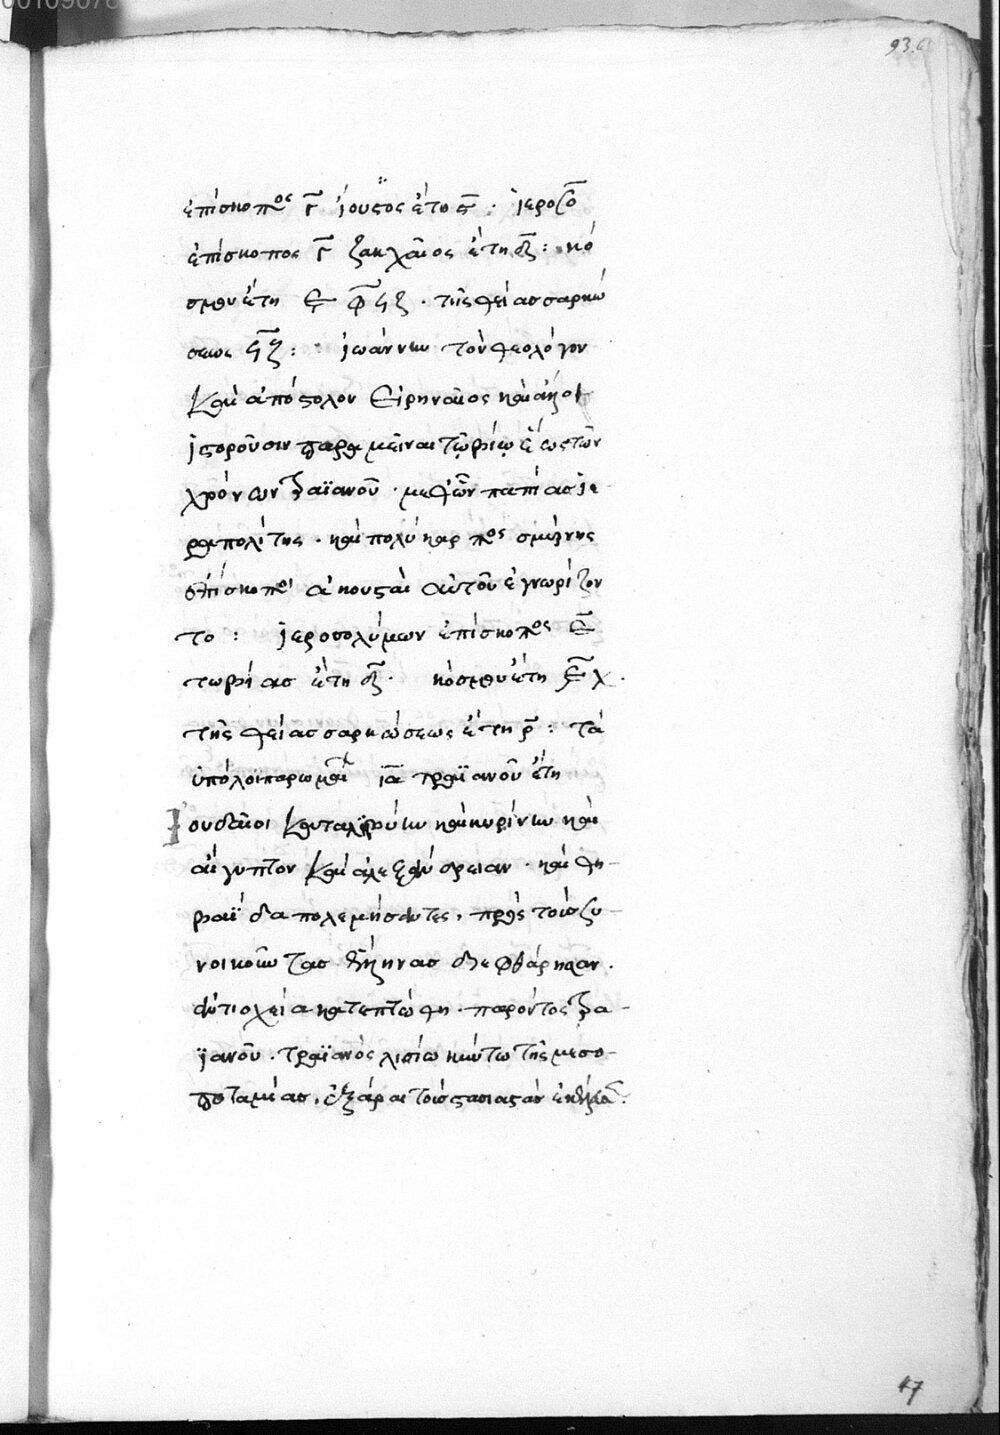 93.
ἐπίσκοπος γ̅ ἰοῦστος ἔτος ϛ̅ · ἱεροσο
ἐπίσκοπος γ̅ ζακχαῖος ἔτη δ̅ : κό
σμου ἔτη ε φϟζ · τῆς θείας σαρκώ
σεως ϟζ : ἰωάννην τὸν θεολόγον
καὶ ἀπόστολον εἰρηναῖος καὶ ἄλλοι
ἱστοροῦσιν παραμεῖναι τῶ βίω ἕως τῶν
χρόνων τραϊανοῦ · μεθ' ὧν παπίας ἱε
ραπολίτης · καὶ πολύκαρπος σμύρνης
ἐπίσκοποι ἀκουσταὶ αὐτοῦ ἐγνωρίζον
το : ἱεροσολύμων ἐπίσκοπος ε̅
τωβίας ἔτη δ̅ · κόσμου ἔτη ͵ε̅χ ·
τῆς θείας σαρκώσεως ἔτη ρ̅ : τὰ
ὑπόλοιπα ῥωμαι ια̅ τραϊανοῦ ἔτη
ουδαῖοι κατὰ λιβύην καὶ κυρίνην καὶ
αἴγυπτον καὶ ἀλεξάνδρειαν · καὶ θη
βαΐδα πολεμήσαντες · πρὸς τοὺς συ
νοικοῦντας ἕλληνας διεφθάρησαν ·
ἀντιοχεία κατεπτώθη · παρόντος τρα
ϊανοῦ · τραϊανὸς λισίω κυήτω τῆς μεσο
ποταμίας · ἐξάραι τοὺς στασιαστὰς
47